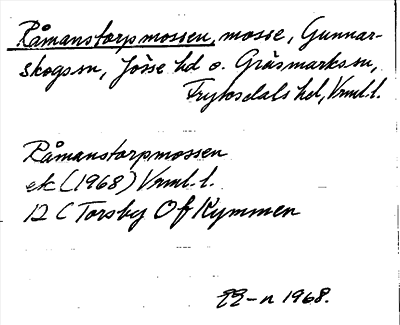 Råmanstorpmossen, mosse, Gunnar-
skogs sn, Jösse hd o. Gräsmarks sn,
Fryksdals hd, Vrml. l.
Råmanstorpmossen
ek (1968) Vrml. l.
12 C Torsby Of Kymmen
1968.